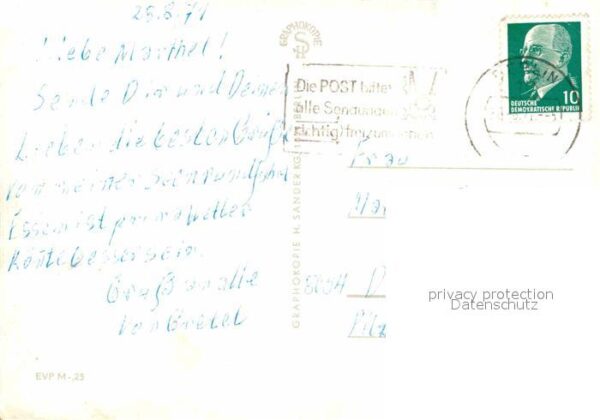 25.8.71
Liebe Marthel!
Sende Dir und Deinen
Lieben die besten Grüße
von meiner
Essen ist prima Wetter
könte besser sein.
Gruß an alle
von Gretel
EVP M -,25
GRAPHOKOPIE
GRAPHOKOPIE H. SANDER KG. BERLIN
Die POST bittet
alle Sendungen
richtig freizumachen
DEUTSCHE
DEMOKRATISCHE REPUBLIK
10
Frau
Ma
D
privacy protection
Datenschutz